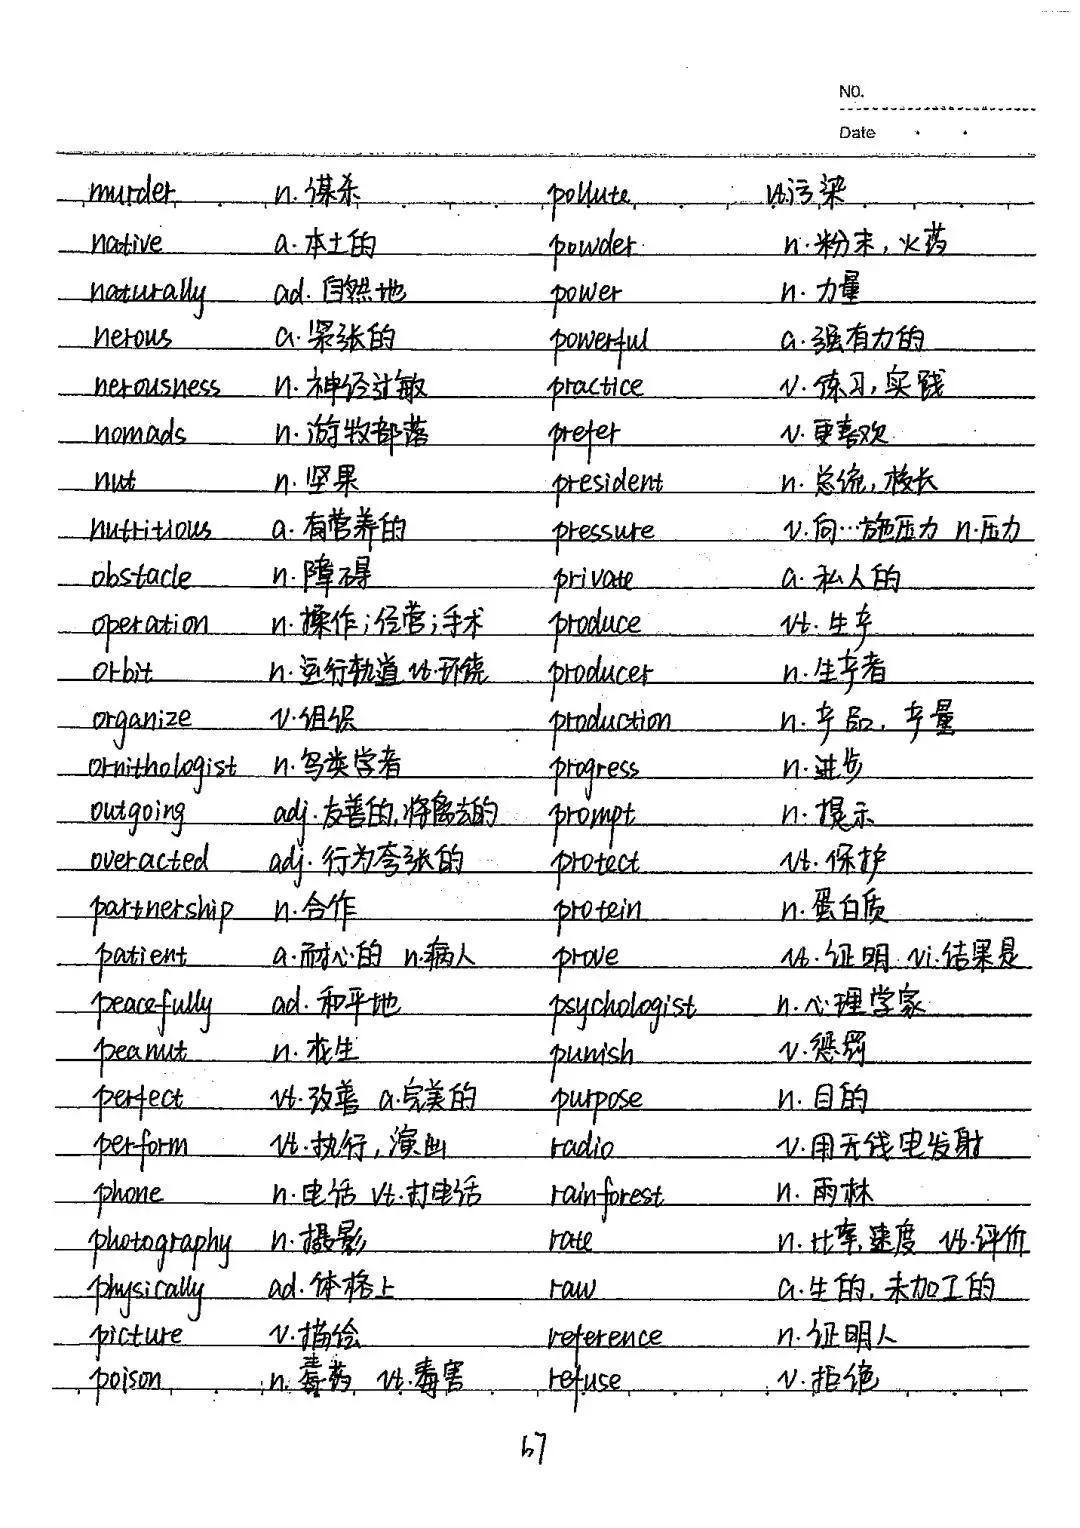 NO.
Date
murder n. 谋杀 pollute vt.污染
native a. 本土的 powder n. 粉末, 火药
naturally ad. 自然地 power n. 力量
nerous a. 紧张的 powerful a. 强有力的
nerousness n. 神经过敏 practice v. 练习, 实践
nomads n. 游牧部落 prefer v. 更喜欢
nut n. 坚果 president n. 总统, 校长
nutritious a. 有营养的 pressure v. 向…施压力 n.压力
obstacle n. 障碍 private a. 私人的
operation n. 操作; 经营; 手术 produce vt. 生产
orbit n. 运行轨道 vt.环绕 producer n. 生产者
organize v. 组织 production n. 产品, 产量
ornithologist n. 鸟类学者 progress n. 进步
outgoing adj. 友善的, 将离去的 prompt n. 提示
overacted adj. 行为夸张的 protect vt. 保护
partnership n. 合作 protein n. 蛋白质
patient a. 耐心的 n.病人 prove vt. 证明 vi.结果是
peacefully ad. 和平地 psychologist n. 心理学家
peanut n. 花生 punish v. 惩罚
perfect vt.改善 a.完美的 purpose n. 目的
perform vt.执行, 演出 radio v. 用无线电发射
phone n. 电话 vt.打电话 rainforest n. 雨林
photography n. 摄影 rate n. 比率, 速度 vt.评价
physically ad. 体格上 raw a. 生的, 未加工的
picture v. 描绘 reference n. 证明人
poison n. 毒药 vt.毒害 refuse v. 拒绝
67